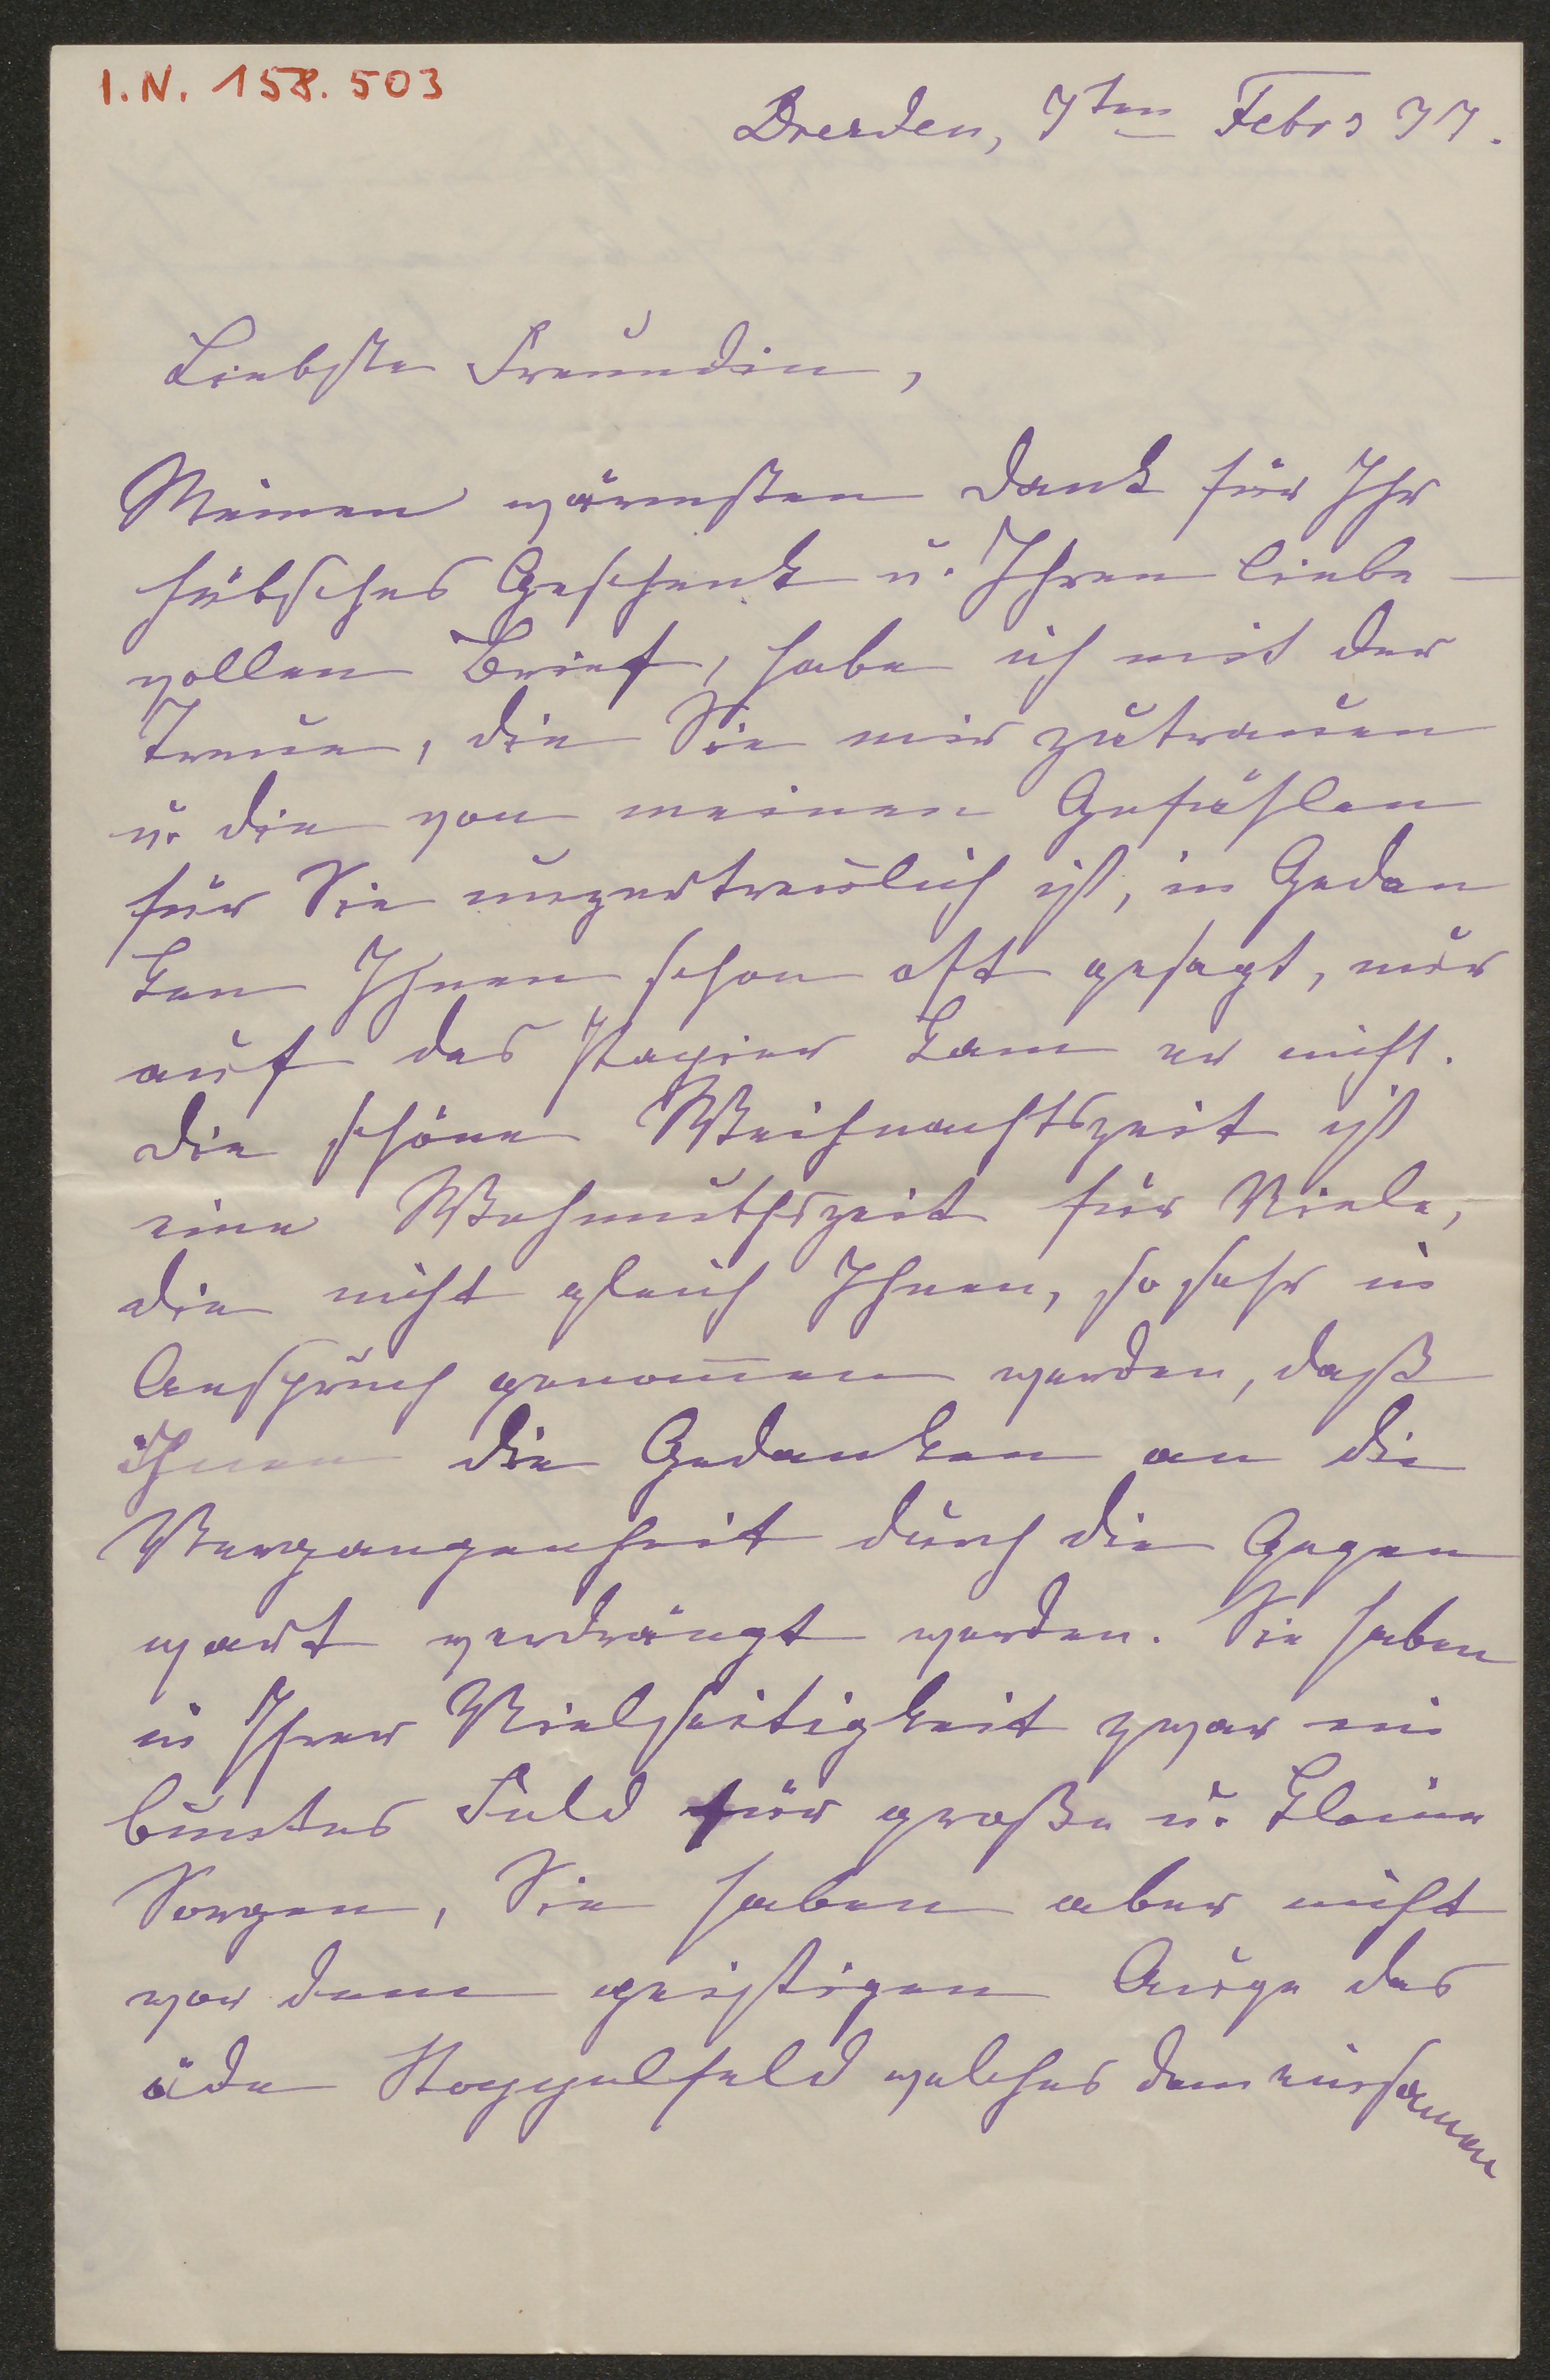 I.N. 158.503
Dresden, 7ten Febr 77.
Liebste Freundin,
Meinen wärmsten Dank für Ihr
hübsches Geschenk u. Ihren liebe-
vollen Brief, habe ich mit der
Treue, die Sie mir zutrauen
u. die von meinen Gefühlen
für Sie unzertrenlich ist, in Gedan
ken Ihnen schon oft gesagt, nur
auf das Papier kam er nicht.
Die schöne Weihnachtszeit ist
eine Wehmuthszeit für Viele,
die nicht gleich Ihnen, so sehr in
Anspruch genom̅en werden, daß
Ihnen die Gedanken an die
Vergangenheit durch die Gegen
wart verdrängt werden. Sie haben
in Ihrer Vielseitigkeit zwar ein
buntes Feld für große u. kleine
Sorgen, Sie haben aber nicht
vor dem geistigen Auge das
öde Stoppelfeld welches dem einsamen